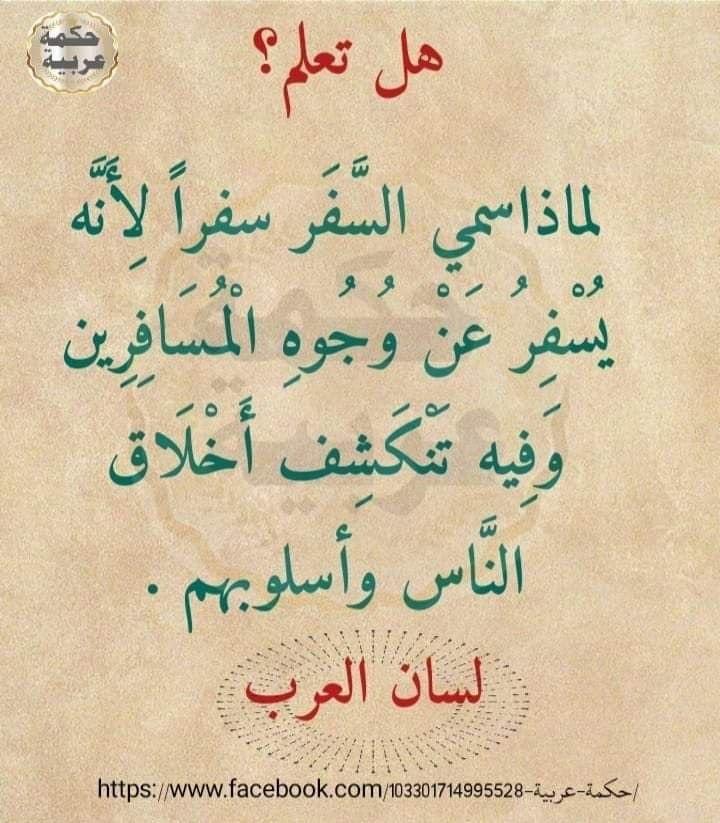 حكمة
عربية
هل تعلم؟
لماذاسمي السَّفَر سفراً لِأَنَّه
يُسْفِرُ عَنْ وُجُوهِ الْمُسَافِرِين
وَفِيه تَنْكَشِف أَخْلَاق
النَّاس وأسلوبهم .
لسان العرب
https://www.facebook.com/حكمة-عربية-103301714995528/